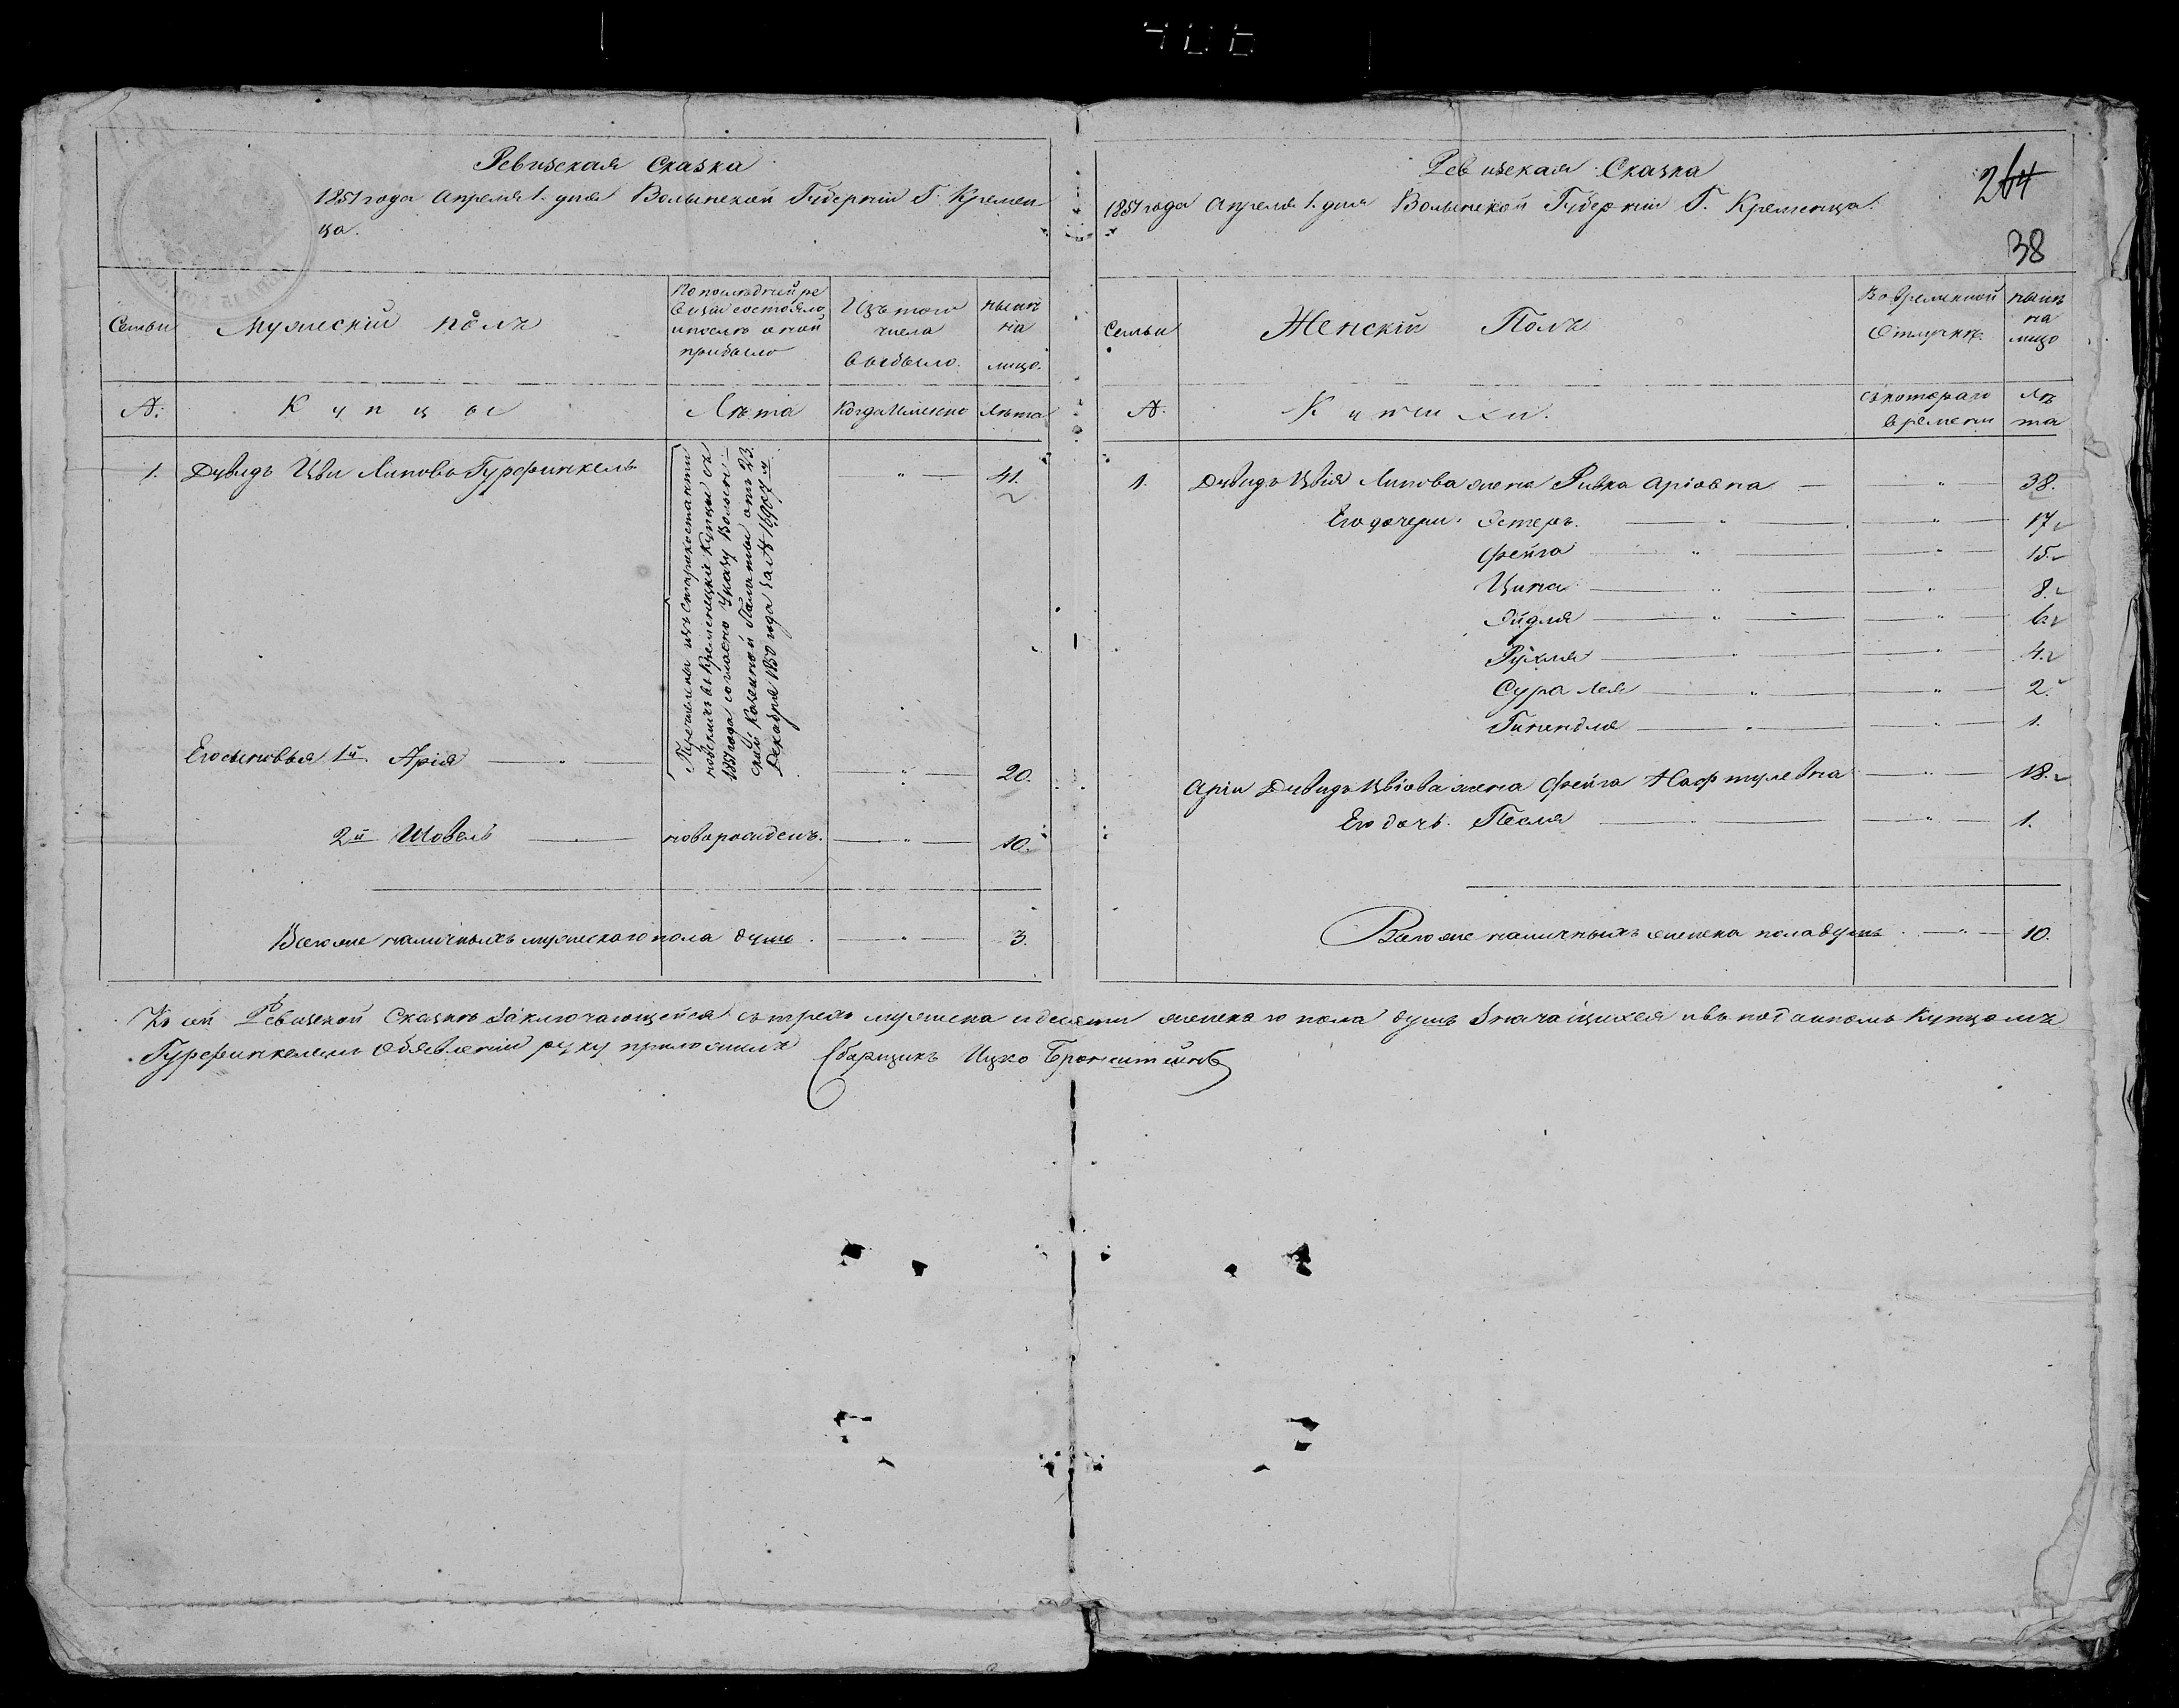 Ревизская Сказка
1851 года Апреля 1. дня Волынской Губернiи Г. Кремен
ца.
Семьи
Мужескiй полъ
По последней ре
визiи состояло
и после оной
прибыло
Изъ того
числа
выбыло.
ныне
на
лицо.
№.
Купцы
Лѣта
Когда Именно
Лѣта
1. Дувидъ Цви Липовъ Гурфинкель — " — 41.
Перечислены изъ Староконстанти
новскихъ въ Кременецкiе Купцы съ
1851 года согласно Указу Волын
ской Казенной Палаты отъ 23.
Декабря 1850 года за №16907 м
Его сыновья 1й Арiя — " — 20.
2й Шовель — новорожденъ. — " — 10.
Всего же наличныхъ мужескаго пола душъ. — " — 3.
Ревизская Сказка
264
1851 года Апреля 1. дня Волынской Губернiи Г. Кременца.
38
Семьи
Женскiй Полъ
Во Временной
Отлучке.
ныне
на
лицо
№.
Купчихи.
съ котораго
времени
Лѣ
та
1. Дувидъ Цвiя Липова жена Ривка Арiовна — " — 38.
Его дочери. Эстеръ. — " — 17
Фейга — " — 15.
Цина — " — 8.
Эйдля — " — 6.
Рухля — " — 4.
Сура Лея — " — 2.
Гинендля — " — 1.
Арiи Дувидъ Цвiова жена Фейга Нафтулевна — " — 18.
Его дочь. Песля — " — 1.
Всего же наличныхъ женска пола душъ. — " — 10.
Къ сей Ревизской Сказке Заключающейся съ трехъ мужеска и десяти женскаго пола душъ Значащихся и въ поданномъ Купцомъ
Гурфинкелемъ Объявленiи руку приложилъ Сборщикъ Ицко Бронштейнъ